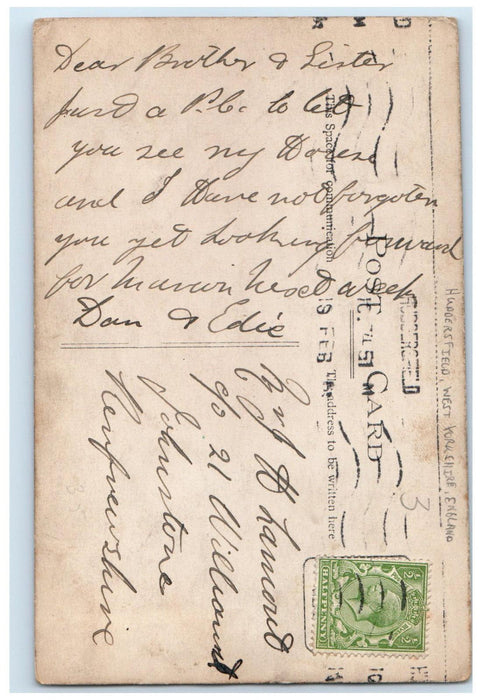 Dear Brother & Sister
just a P.C. to let
you see my House
and I Have not forgoten
you yet Looking forward
for Marion Next week
Dan & Edie
H Lamont
c/o 21 William St
Johnstone
Renfrewshire
POST CARD
This Space for communication
The address to be written here
HUDDERSFIELD
19 FEB
HUDDERSFIELD, WEST YORKSHIRE, ENGLAND
3
HALFPENNY